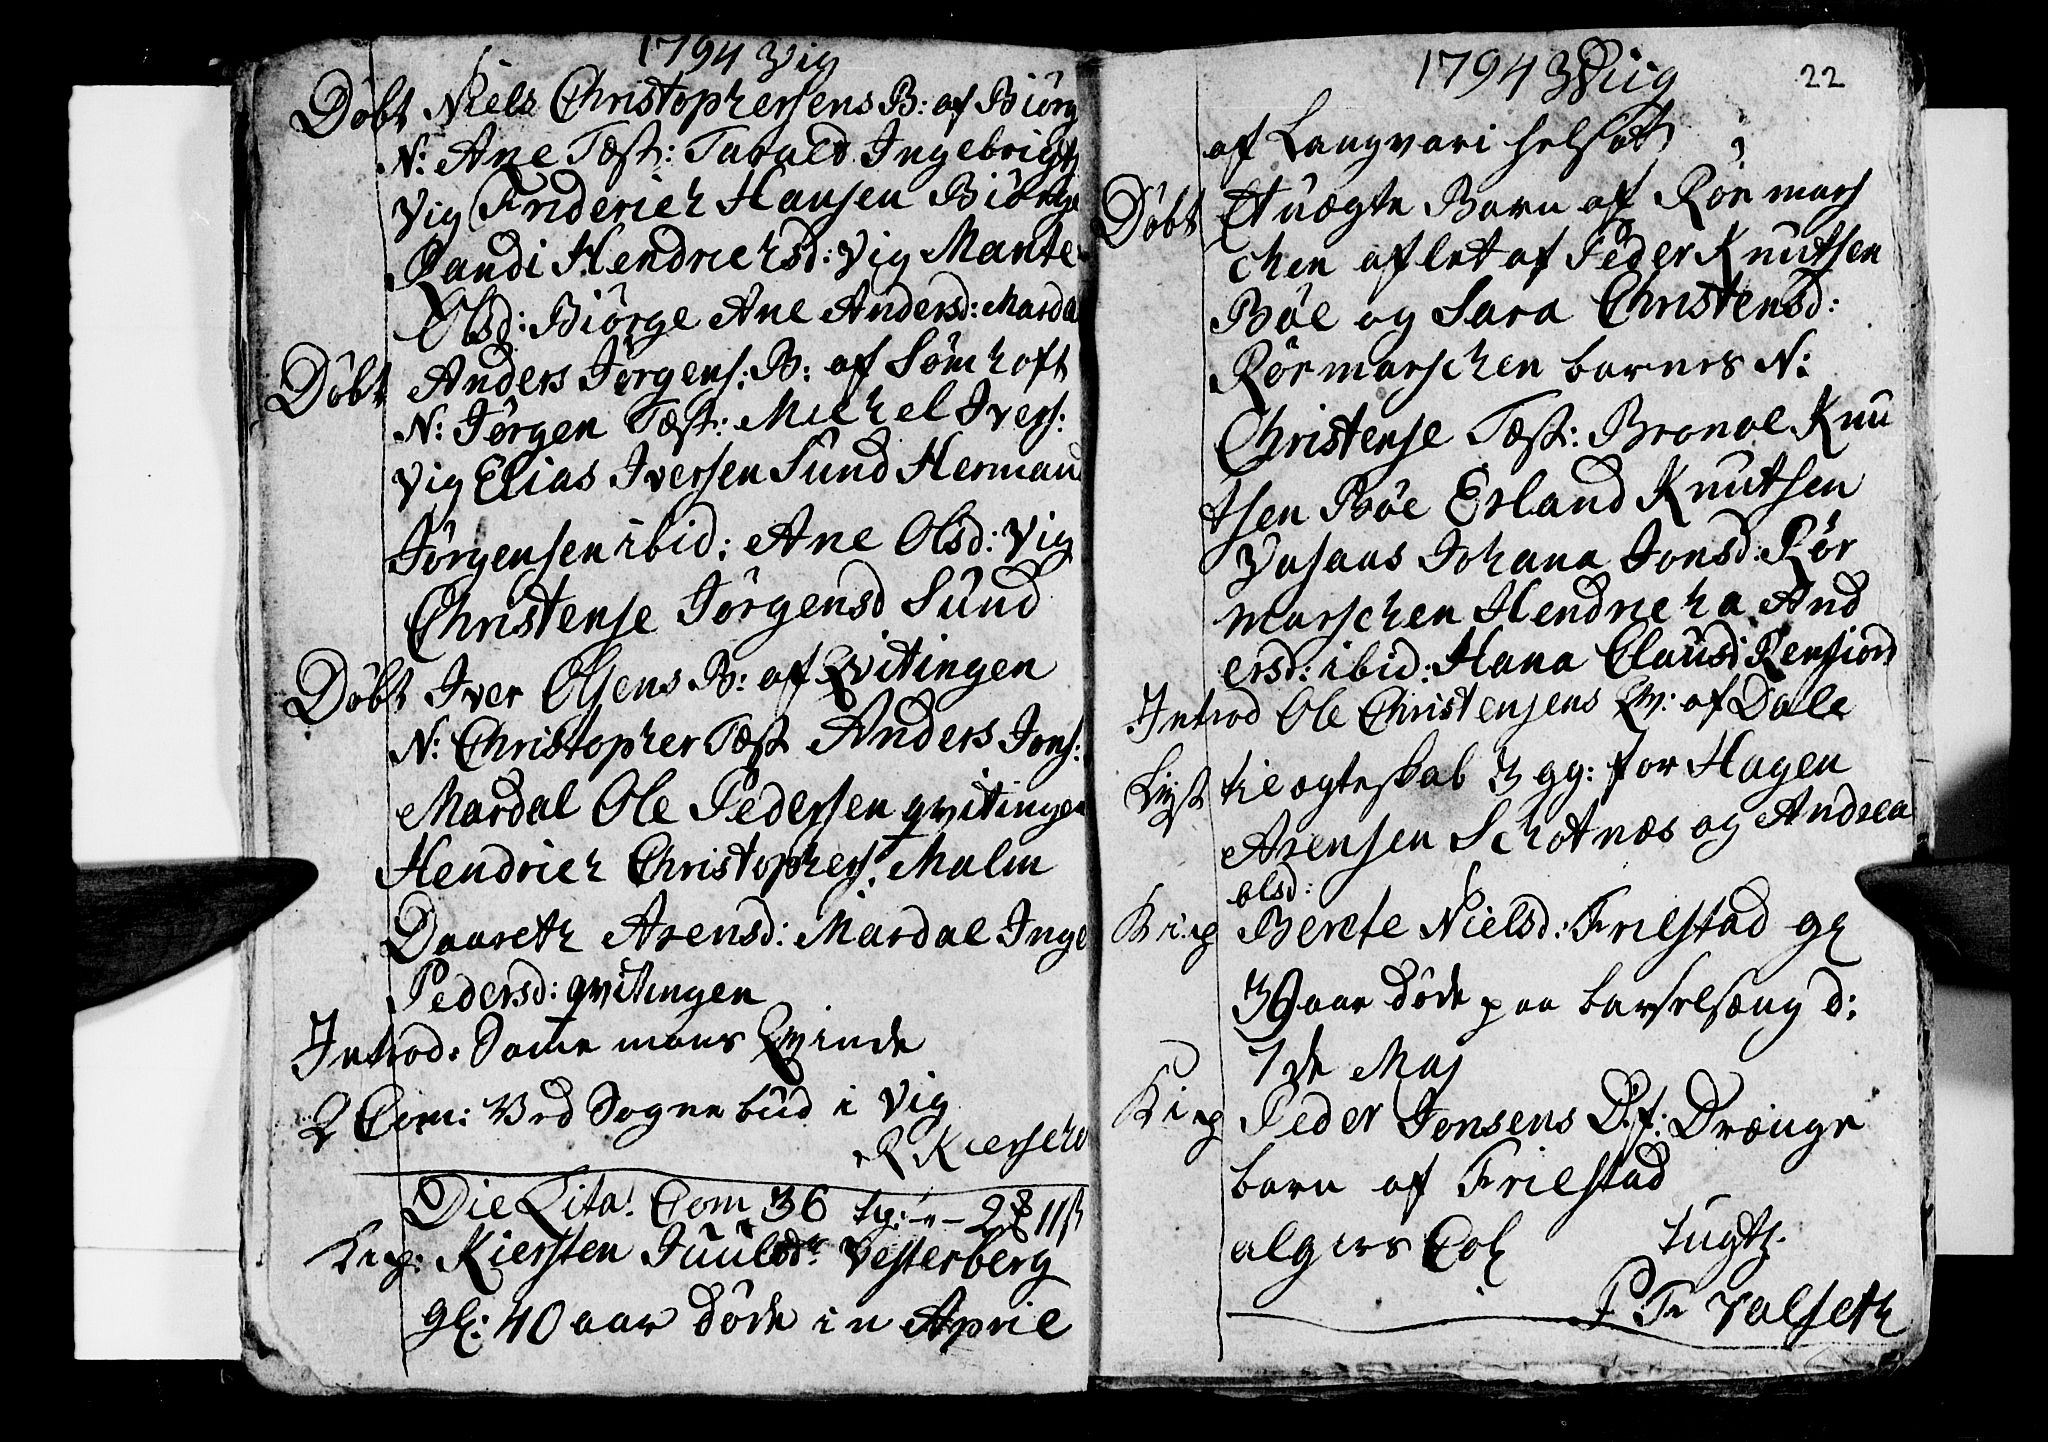 1794 Vig
Döbt Niels Christophersens B: af Biörg
N: Ane Test: Tarald Ingebrigts
Vig Friderich Hansen Biörge
Randi Hendrichsd: Vig Marite
Olsd: Biörge Ane Andersd: Marda
Döbt Anders Jörgens: B: af Sömhoft
N: Jörgen Test: Michel Ivers:
Vig Elias Iversen Sund Herman
Jörgensen ibid: Ane Olsd: Vig
Christense Jörgensd Sund
Döbt Iver Olsens B: af Qvitingen
N: Christopher Test Anders Jons:
Mardal Ole Pedersen qvitingen
Hendrich Christophers: Malm
Daareth Arensd: Mardal Inge
Pedersd: qvitingen
Introd: Samme mans Qvinde
2 Com: Ved Sognebud i Vig
R Kiersch
Die Lita: Com 36 11ß
Kiersten Juulsdr Vesterberg
gl: 40 aar döde in April
1794 Viig 22
af Langvari helsot
Döbt Et uægte Barn af Rörmars
chen aflet af Peder Knutsen
Böe og Sara Christensd:
Rörmarschen barnes N:
Christense Test: Bronol Knu
tsen Böe Erland Knutsen
Johana Jonsd: Rör
marschen Hendricha And
ersd: ibid: Hana Clausd Rensiord
Introd Ole Christensens Qv: af Dale
Lyst til ægteskab 3 gg: for Hagen
Arensen Schotnæs og Andrea
olsd:
Berete Nielsd: Frilstad gl
39 aar döde paa barselsæng d:
7de Maj
Peder Jonsens D.f: Drænge
barn af Frilstad
algers Col
P Fr Valseth